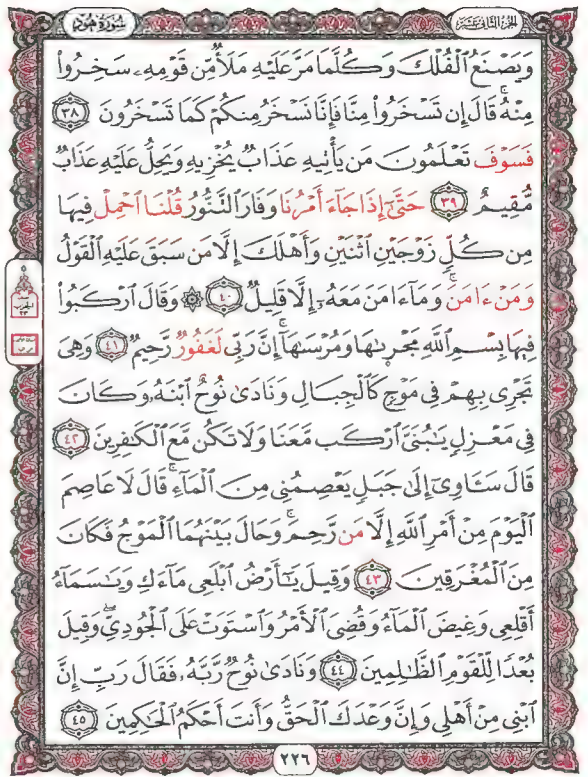 سُورَةُ هُودٍ
الجزء الثاني عشر
وَيَصْنَعُ ٱلْفُلْكَ وَكُلَّمَا مَرَّ عَلَيْهِ مَلَأٌ مِّن قَوْمِهِۦ سَخِرُوا۟
مِنْهُ ۚ قَالَ إِن تَسْخَرُوا۟ مِنَّا فَإِنَّا نَسْخَرُ مِنكُمْ كَمَا تَسْخَرُونَ ٣٨
فَسَوْفَ تَعْلَمُونَ مَن يَأْتِيهِ عَذَابٌ يُخْزِيهِ وَيَحِلُّ عَلَيْهِ عَذَابٌ
مُّقِيمٌ ٣٩ حَتَّىٰٓ إِذَا جَآءَ أَمْرُنَا وَفَارَ ٱلتَّنُّورُ قُلْنَا ٱحْمِلْ فِيهَا
مِن كُلٍّ زَوْجَيْنِ ٱثْنَيْنِ وَأَهْلَكَ إِلَّا مَن سَبَقَ عَلَيْهِ ٱلْقَوْلُ
وَمَنْ ءَامَنَ ۚ وَمَآ ءَامَنَ مَعَهُۥٓ إِلَّا قَلِيلٌ ٤٠ ۞ وَقَالَ ٱرْكَبُوا۟
فِيهَا بِسْمِ ٱللَّهِ مَجْر۪ىٰهَا وَمُرْسَىٰهَآ ۚ إِنَّ رَبِّى لَغَفُورٌ رَّحِيمٌ ٤١ وَهِىَ
تَجْرِى بِهِمْ فِى مَوْجٍ كَٱلْجِبَالِ وَنَادَىٰ نُوحٌ ٱبْنَهُۥ وَكَانَ
فِى مَعْزِلٍ يَـٰبُنَىَّ ٱرْكَب مَّعَنَا وَلَا تَكُن مَّعَ ٱلْكَـٰفِرِينَ ٤٢
قَالَ سَـَٔاوِىٓ إِلَىٰ جَبَلٍ يَعْصِمُنِى مِنَ ٱلْمَآءِ ۚ قَالَ لَا عَاصِمَ
ٱلْيَوْمَ مِنْ أَمْرِ ٱللَّهِ إِلَّا مَن رَّحِمَ ۚ وَحَالَ بَيْنَهُمَا ٱلْمَوْجُ فَكَانَ
مِنَ ٱلْمُغْرَقِينَ ٤٣ وَقِيلَ يَـٰٓأَرْضُ ٱبْلَعِى مَآءَكِ وَيَـٰسَمَآءُ
أَقْلِعِى وَغِيضَ ٱلْمَآءُ وَقُضِىَ ٱلْأَمْرُ وَٱسْتَوَتْ عَلَى ٱلْجُودِىِّ ۖ وَقِيلَ
بُعْدًا لِّلْقَوْمِ ٱلظَّـٰلِمِينَ ٤٤ وَنَادَىٰ نُوحٌ رَّبَّهُۥ فَقَالَ رَبِّ إِنَّ
ٱبْنِى مِنْ أَهْلِى وَإِنَّ وَعْدَكَ ٱلْحَقُّ وَأَنتَ أَحْكَمُ ٱلْحَـٰكِمِينَ ٤٥
٢٢٦